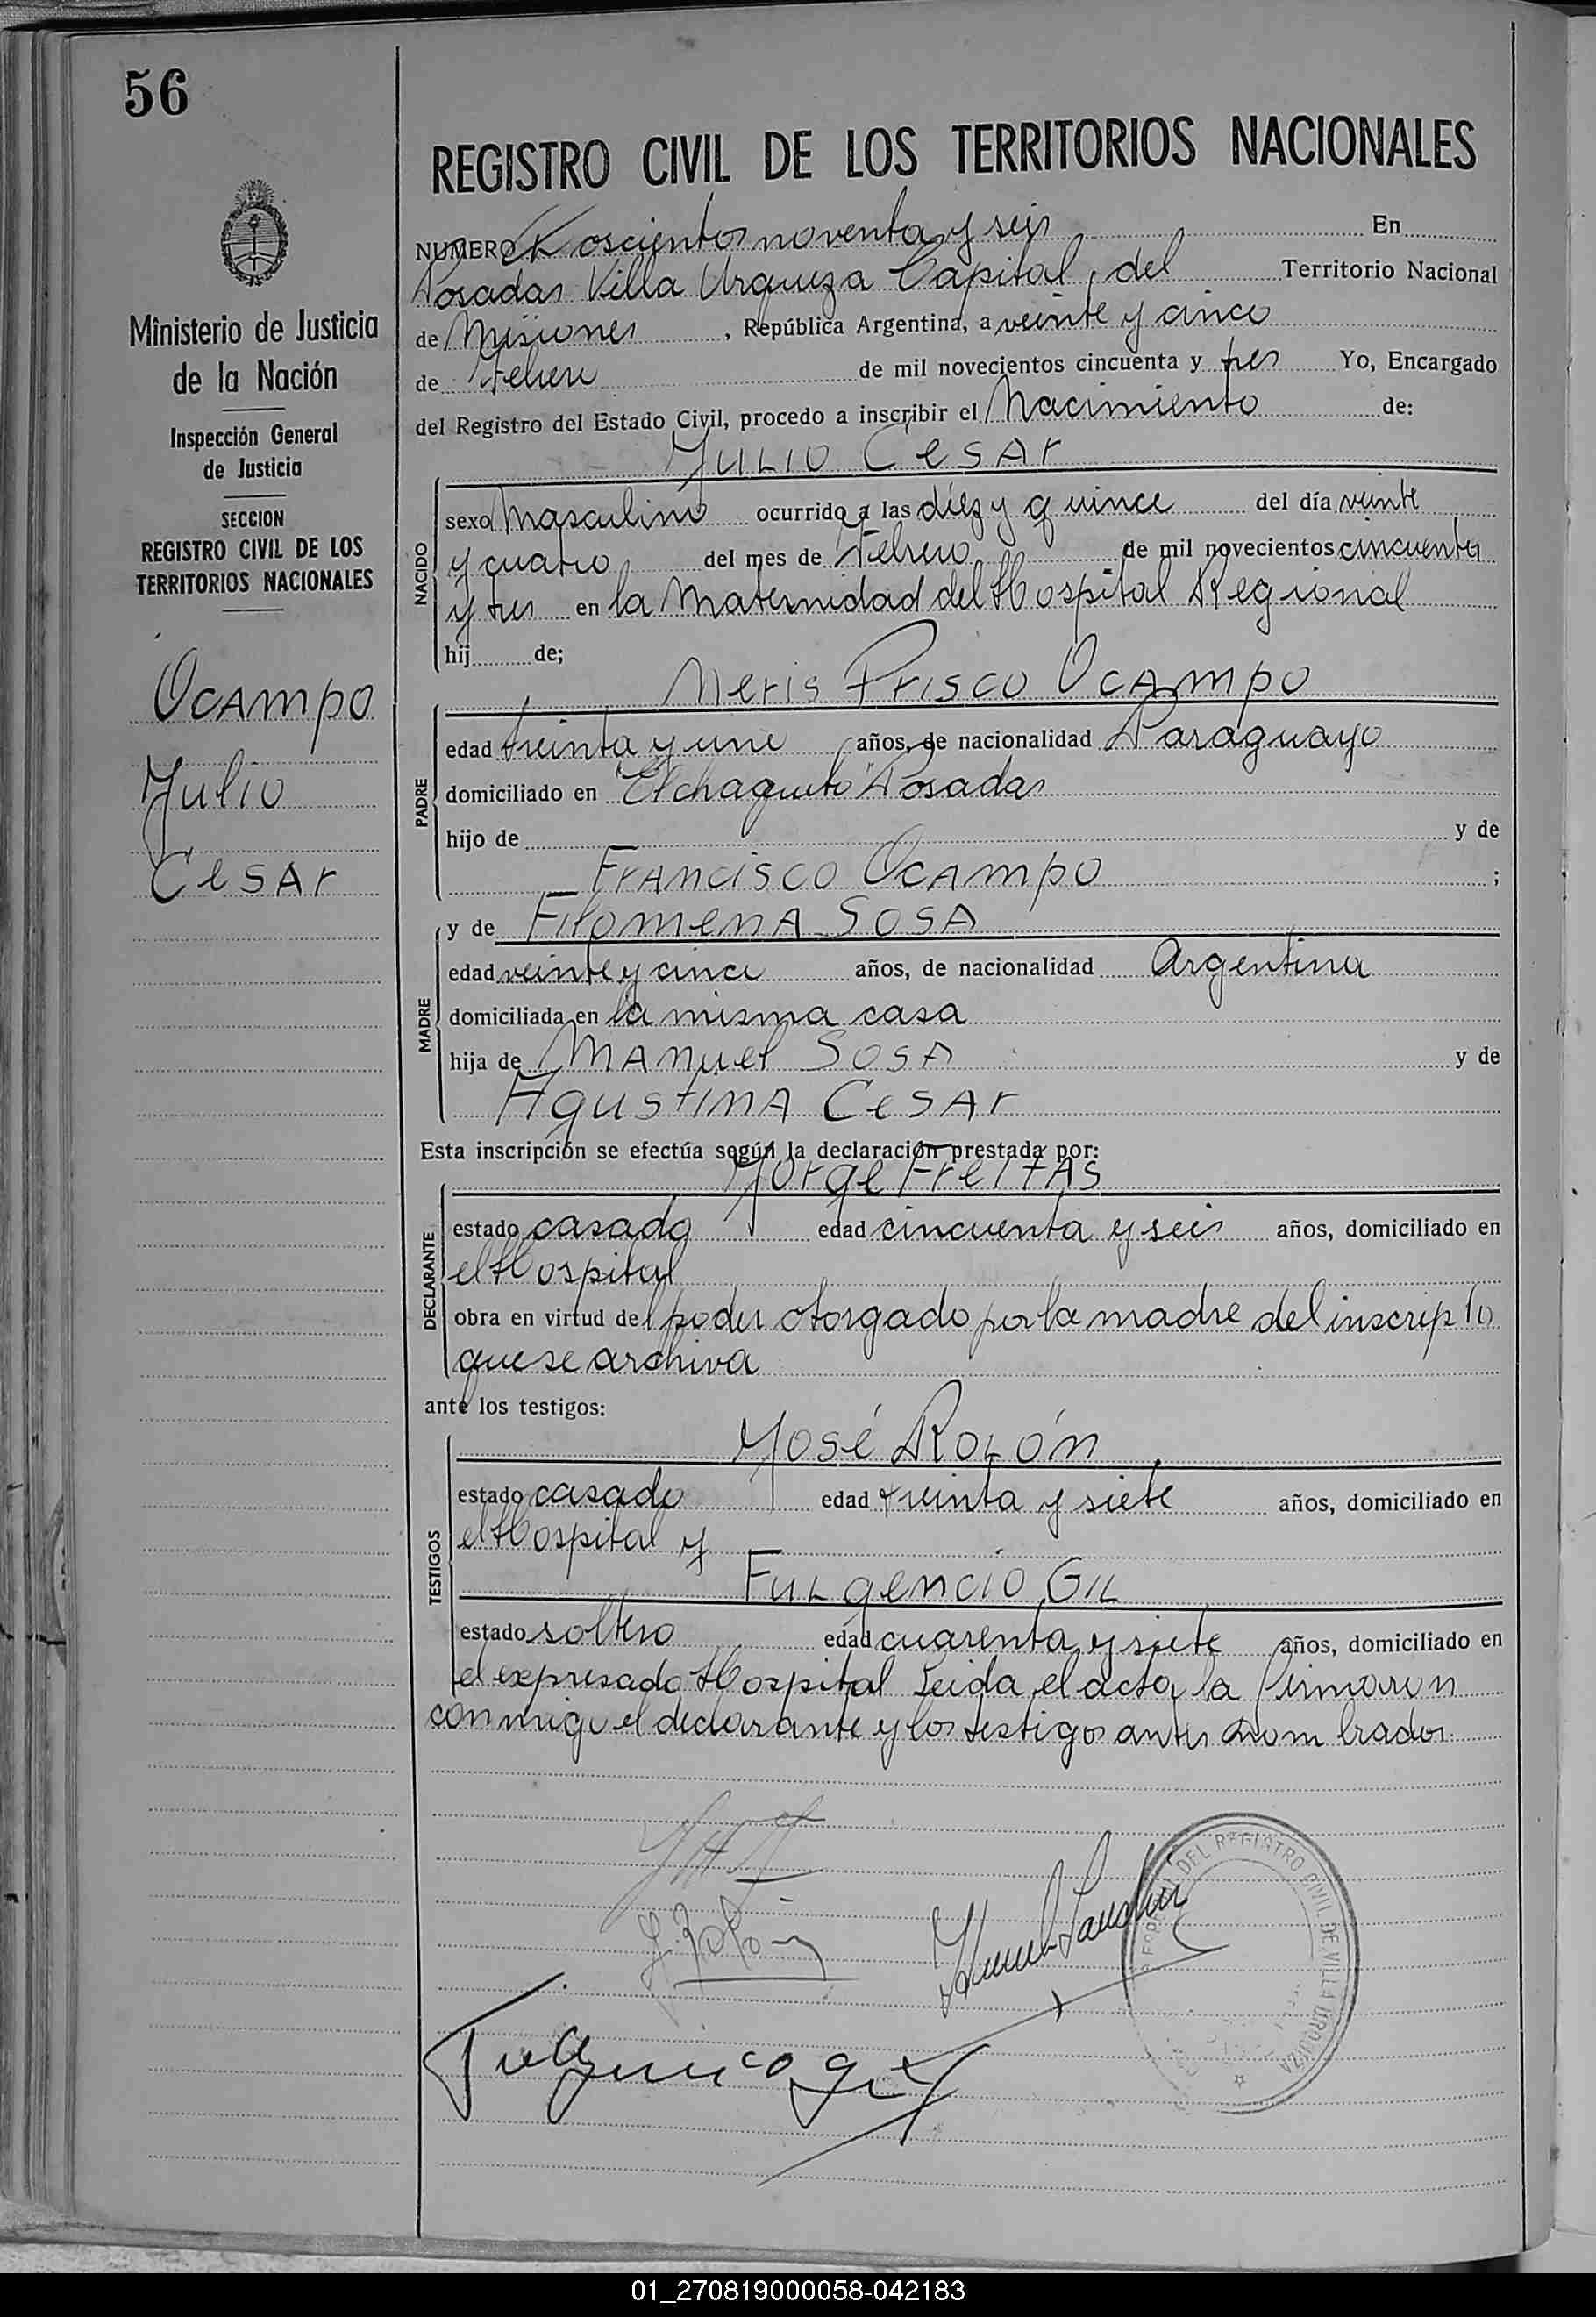 56
Ministerio de Justicia
de la Nación
Inspección General
de Justicia
SECCION
REGISTRO CIVIL DE LOS
TERRITORIOS NACIONALES
Ocampo
Julio
Cesar
REGISTRO CIVIL DE LOS TERRITORIOS NACIONALES
NUMERO Doscientos noventa y seis En
Posadas Villa Urquiza Capital, del Territorio Nacional
de Misiones, República Argentina, a veinte y cinco
de Febrero de mil novecientos cincuenta y tres Yo, Encargado
del Registro del Estado Civil, procedo a inscribir el Nacimiento de:
Julio Cesar
NACIDO
sexo Masculino ocurrido a las diez y quince del día veinte
y cuatro del mes de Febrero de mil novecientos cincuenta
y tres en la Maternidad del Hospital Regional
hij de;
Neris Prisco Ocampo
PADRE
edad treinta y uno años, de nacionalidad Paraguayo
domiciliado en "El chaquito" Posadas
hijo de y de
Francisco Ocampo ;
y de Filomena Sosa
MADRE
edad veinte y cinco años, de nacionalidad Argentina
domiciliada en la misma casa
hija de Manuel Sosa y de
Agustina Cesar
Esta inscripción se efectúa según la declaración prestada por:
Jorge Freitas
DECLARANTE
estado casado edad cincuenta y seis años, domiciliado en
el Hospital
obra en virtud del poder otorgado por la madre del inscripto
que se archiva
ante los testigos:
José Rolón
TESTIGOS
estado casado edad treinta y siete años, domiciliado en
el Hospital y
Fulgencio Gil
estado soltero edad cuarenta y siete años, domiciliado en
el expresado Hospital Leida el acta, la firmaron
conmigo el declarante y los testigos antes nombrados.
J. Rolón
DEL REGISTRO CIVIL DE VILLA URQUIZA
01_270819000058-042183